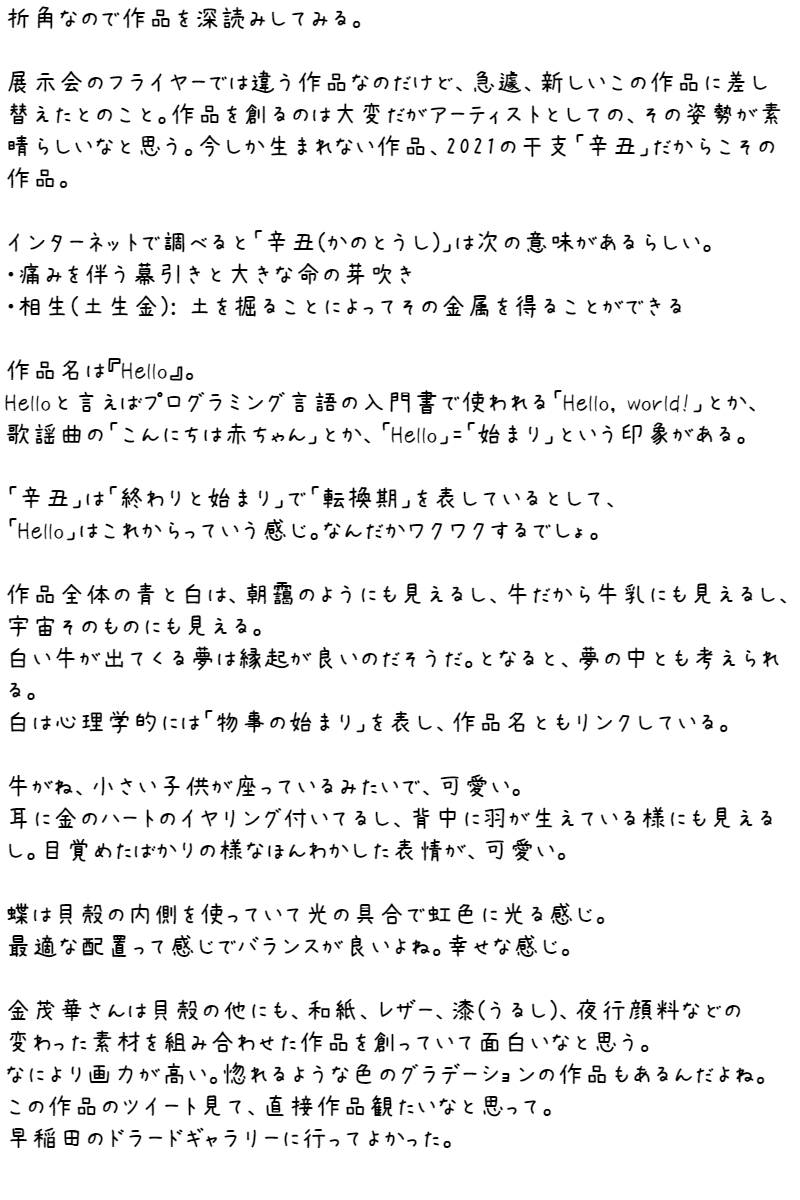 折角なので作品を深読みしてみる。
展示会のフライヤーでは違う作品なのだけど、急遽、新しいこの作品に差し
替えたとのこと。作品を創るのは大変だがアーティストとしての、その姿勢が素
晴らしいなと思う。今しか生まれない作品、2021の干支「辛丑」だからこその
作品。
インターネットで調べると「辛丑(かのとうし)」は次の意味があるらしい。
・痛みを伴う幕引きと大きな命の芽吹き
・相生(土生金): 土を掘ることによってその金属を得ることができる
作品名は『Hello』。
Helloと言えばプログラミング言語の入門書で使われる「Hello, world!」とか、
歌謡曲の「こんにちは赤ちゃん」とか、「Hello」=「始まり」という印象がある。
「辛丑」は「終わりと始まり」で「転換期」を表しているとして、
「Hello」はこれからっていう感じ。なんだかワクワクするでしょ。
作品全体の青と白は、朝靄のようにも見えるし、牛だから牛乳にも見えるし、
宇宙そのものにも見える。
白い牛が出てくる夢は縁起が良いのだそうだ。となると、夢の中とも考えられ
る。
白は心理学的には「物事の始まり」を表し、作品名ともリンクしている。
牛がね、小さい子供が座っているみたいで、可愛い。
耳に金のハートのイヤリング付いてるし、背中に羽が生えている様にも見える
し。目覚めたばかりの様なほんわかした表情が、可愛い。
蝶は貝殻の内側を使っていて光の具合で虹色に光る感じ。
最適な配置って感じでバランスが良いよね。幸せな感じ。
金茂華さんは貝殻の他にも、和紙、レザー、漆(うるし)、夜行顔料などの
変わった素材を組み合わせた作品を創っていて面白いなと思う。
なにより画力が高い。惚れるような色のグラデーションの作品もあるんだよね。
この作品のツイート見て、直接作品観たいなと思って。
早稲田のドラードギャラリーに行ってよかった。